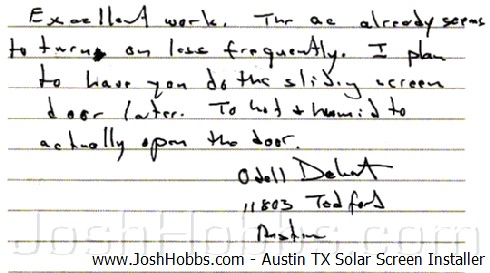 Excellent work. The ac already seems
to turn on less frequently. I plan
to have you do the sliding screen
door later. To hot & humid to
actually open the door.
Odell
11803 Tedford
Austin
JoshHobbs.com
www.JoshHobbs.com - Austin TX Solar Screen Installer